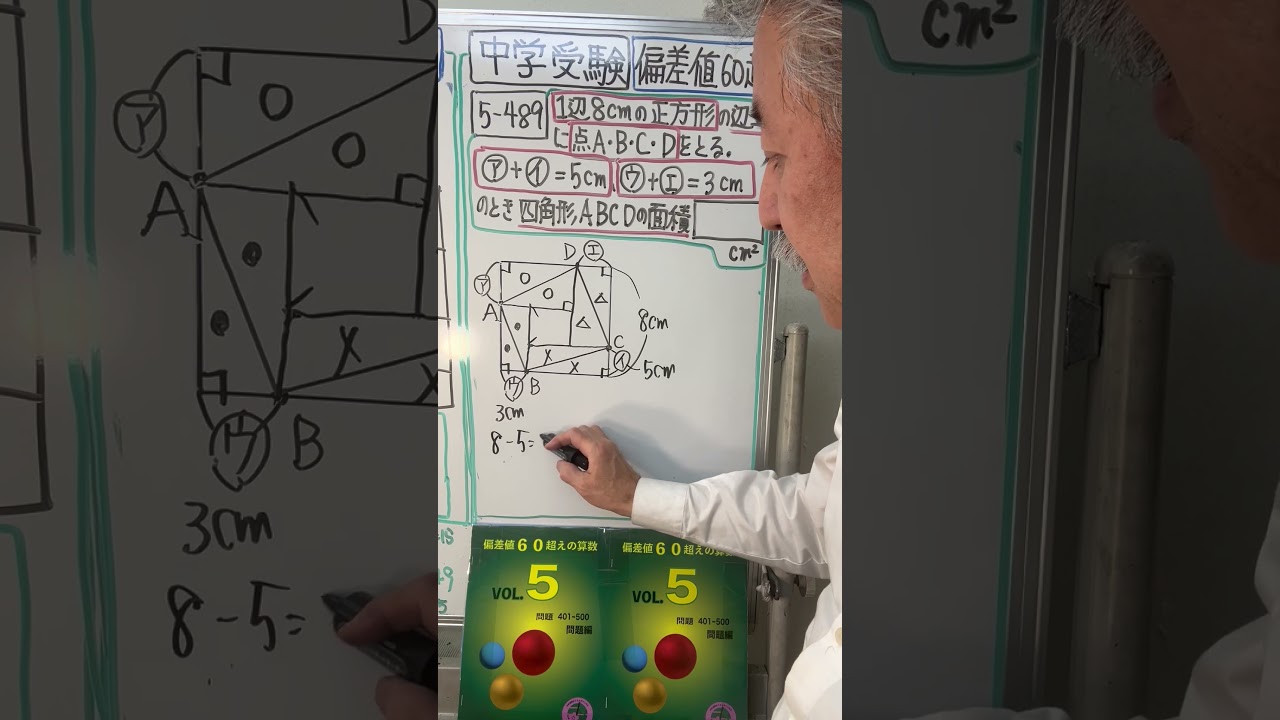 中学受験 偏差値60
5-489 1辺8cmの正方形の辺
に点A・B・C・Dをとる.
㋐+㋑=5cm、㋒+㋓=3cm
のとき四角形ABCDの面積
cm²
D ㋓
㋐
A
8cm
C
㋑ 5cm
㋒ B
3cm
8-5=
偏差値60超えの算数
VOL.5
問題 401-500
問題編
偏差値60超えの算数
VOL.5
問題 401-500
問題編
D
㋐
A
㋒ B
3cm
8-5=
cm²